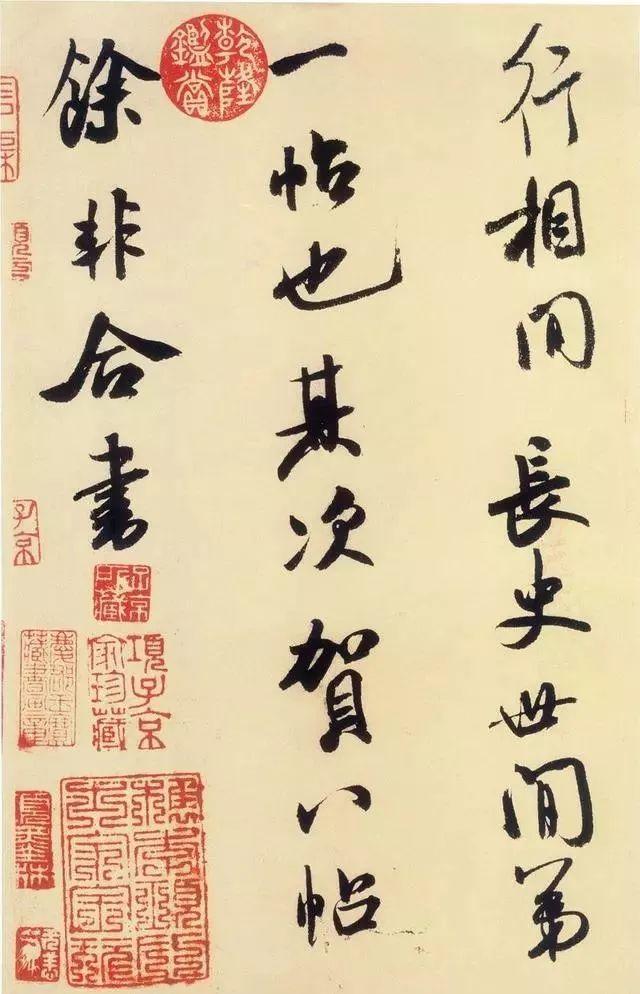 行相間長史世間第
一帖也其次賀八帖
餘非合書
乾隆鑑賞
子京
項子京家珍藏